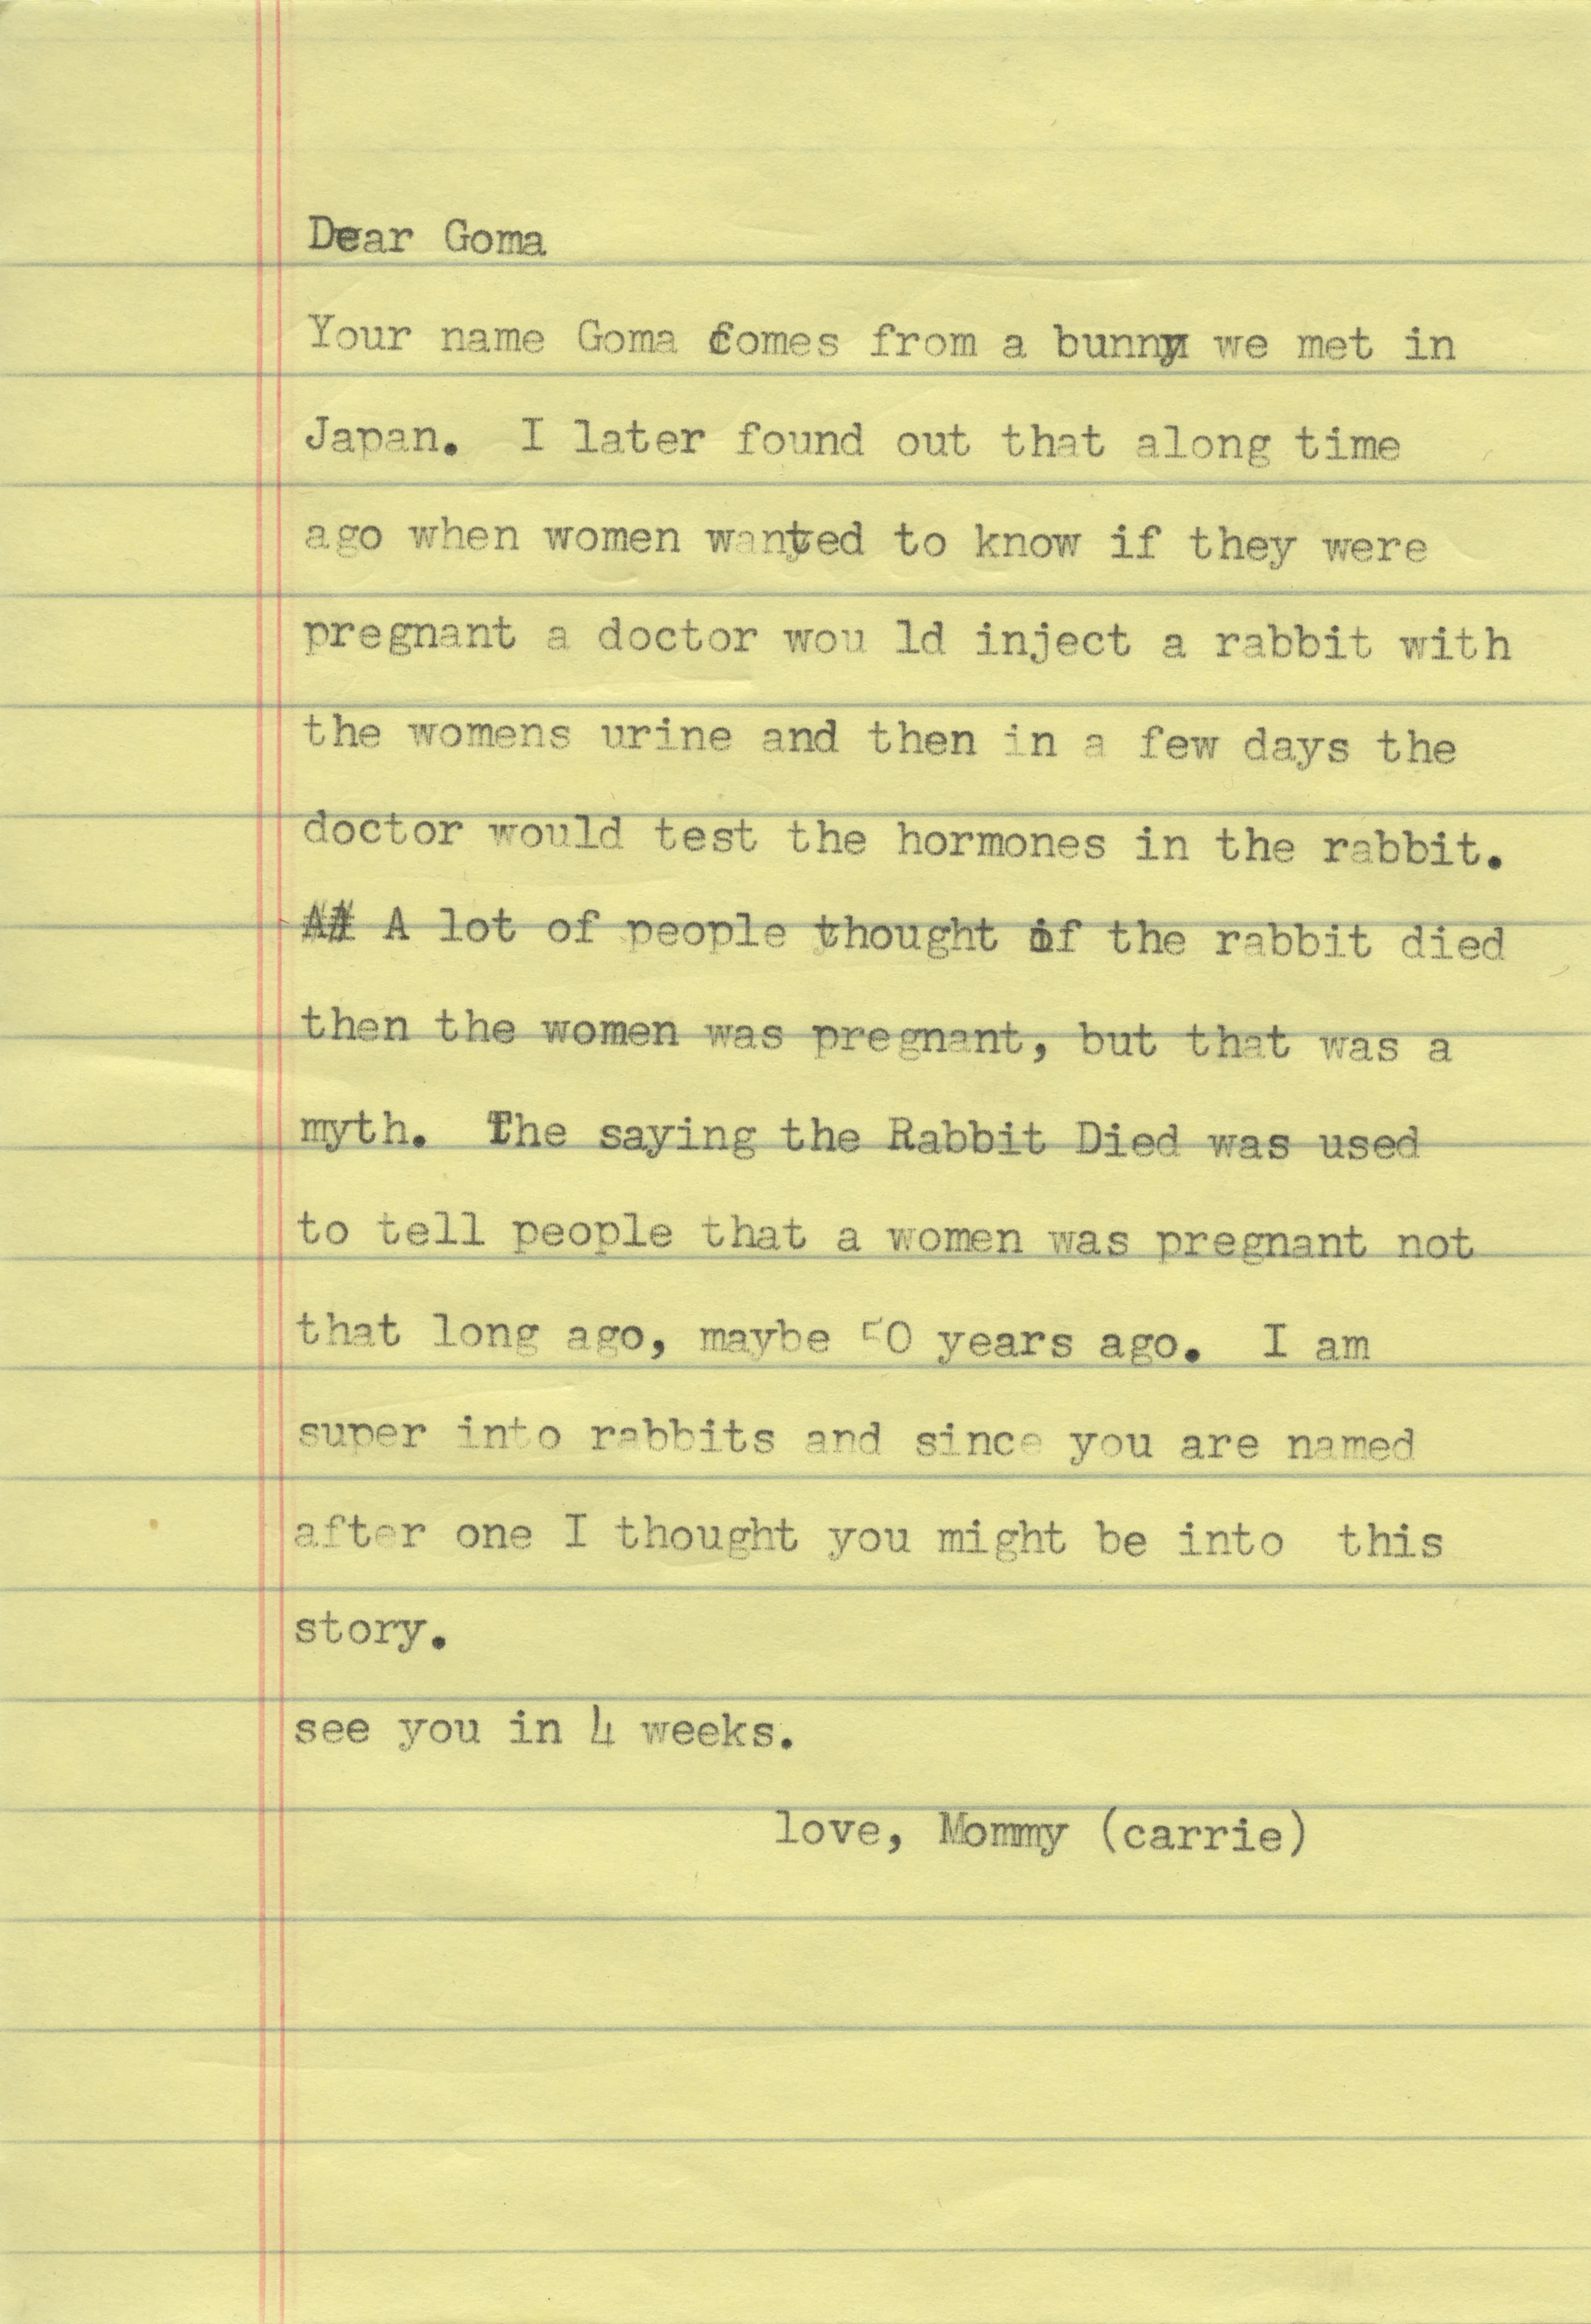 Dear Goma
Your name Goma comes from a bunny we met in
Japan.  I later found out that along time
ago when women wanted to know if they were
pregnant a doctor wou ld inject a rabbit with
the womens urine and then in a few days the
doctor would test the hormones in the rabbit.
A# A lot of people thought if the rabbit died
then the women was pregnant, but that was a
myth.  The saying the Rabbit Died was used
to tell people that a women was pregnant not
that long ago, maybe 50 years ago.  I am
super into rabbits and since you are named
after one I thought you might be into  this
story.
see you in 4 weeks.
love, Mommy (carrie)